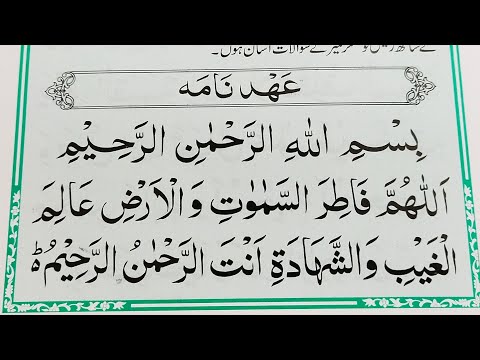 کے ساتھ میرے سوالات آسان ہوں۔
عَهْد نَامَه
بِسْمِ اللهِ الرَّحْمٰنِ الرَّحِيْمِ
اَللّٰهُمَّ فَاطِرَ السَّمٰوٰتِ وَالْاَرْضِ عَالِمَ
الْغَيْبِ وَالشَّهَادَةِ اَنْتَ الرَّحْمٰنُ الرَّحِيْمُ ؕ